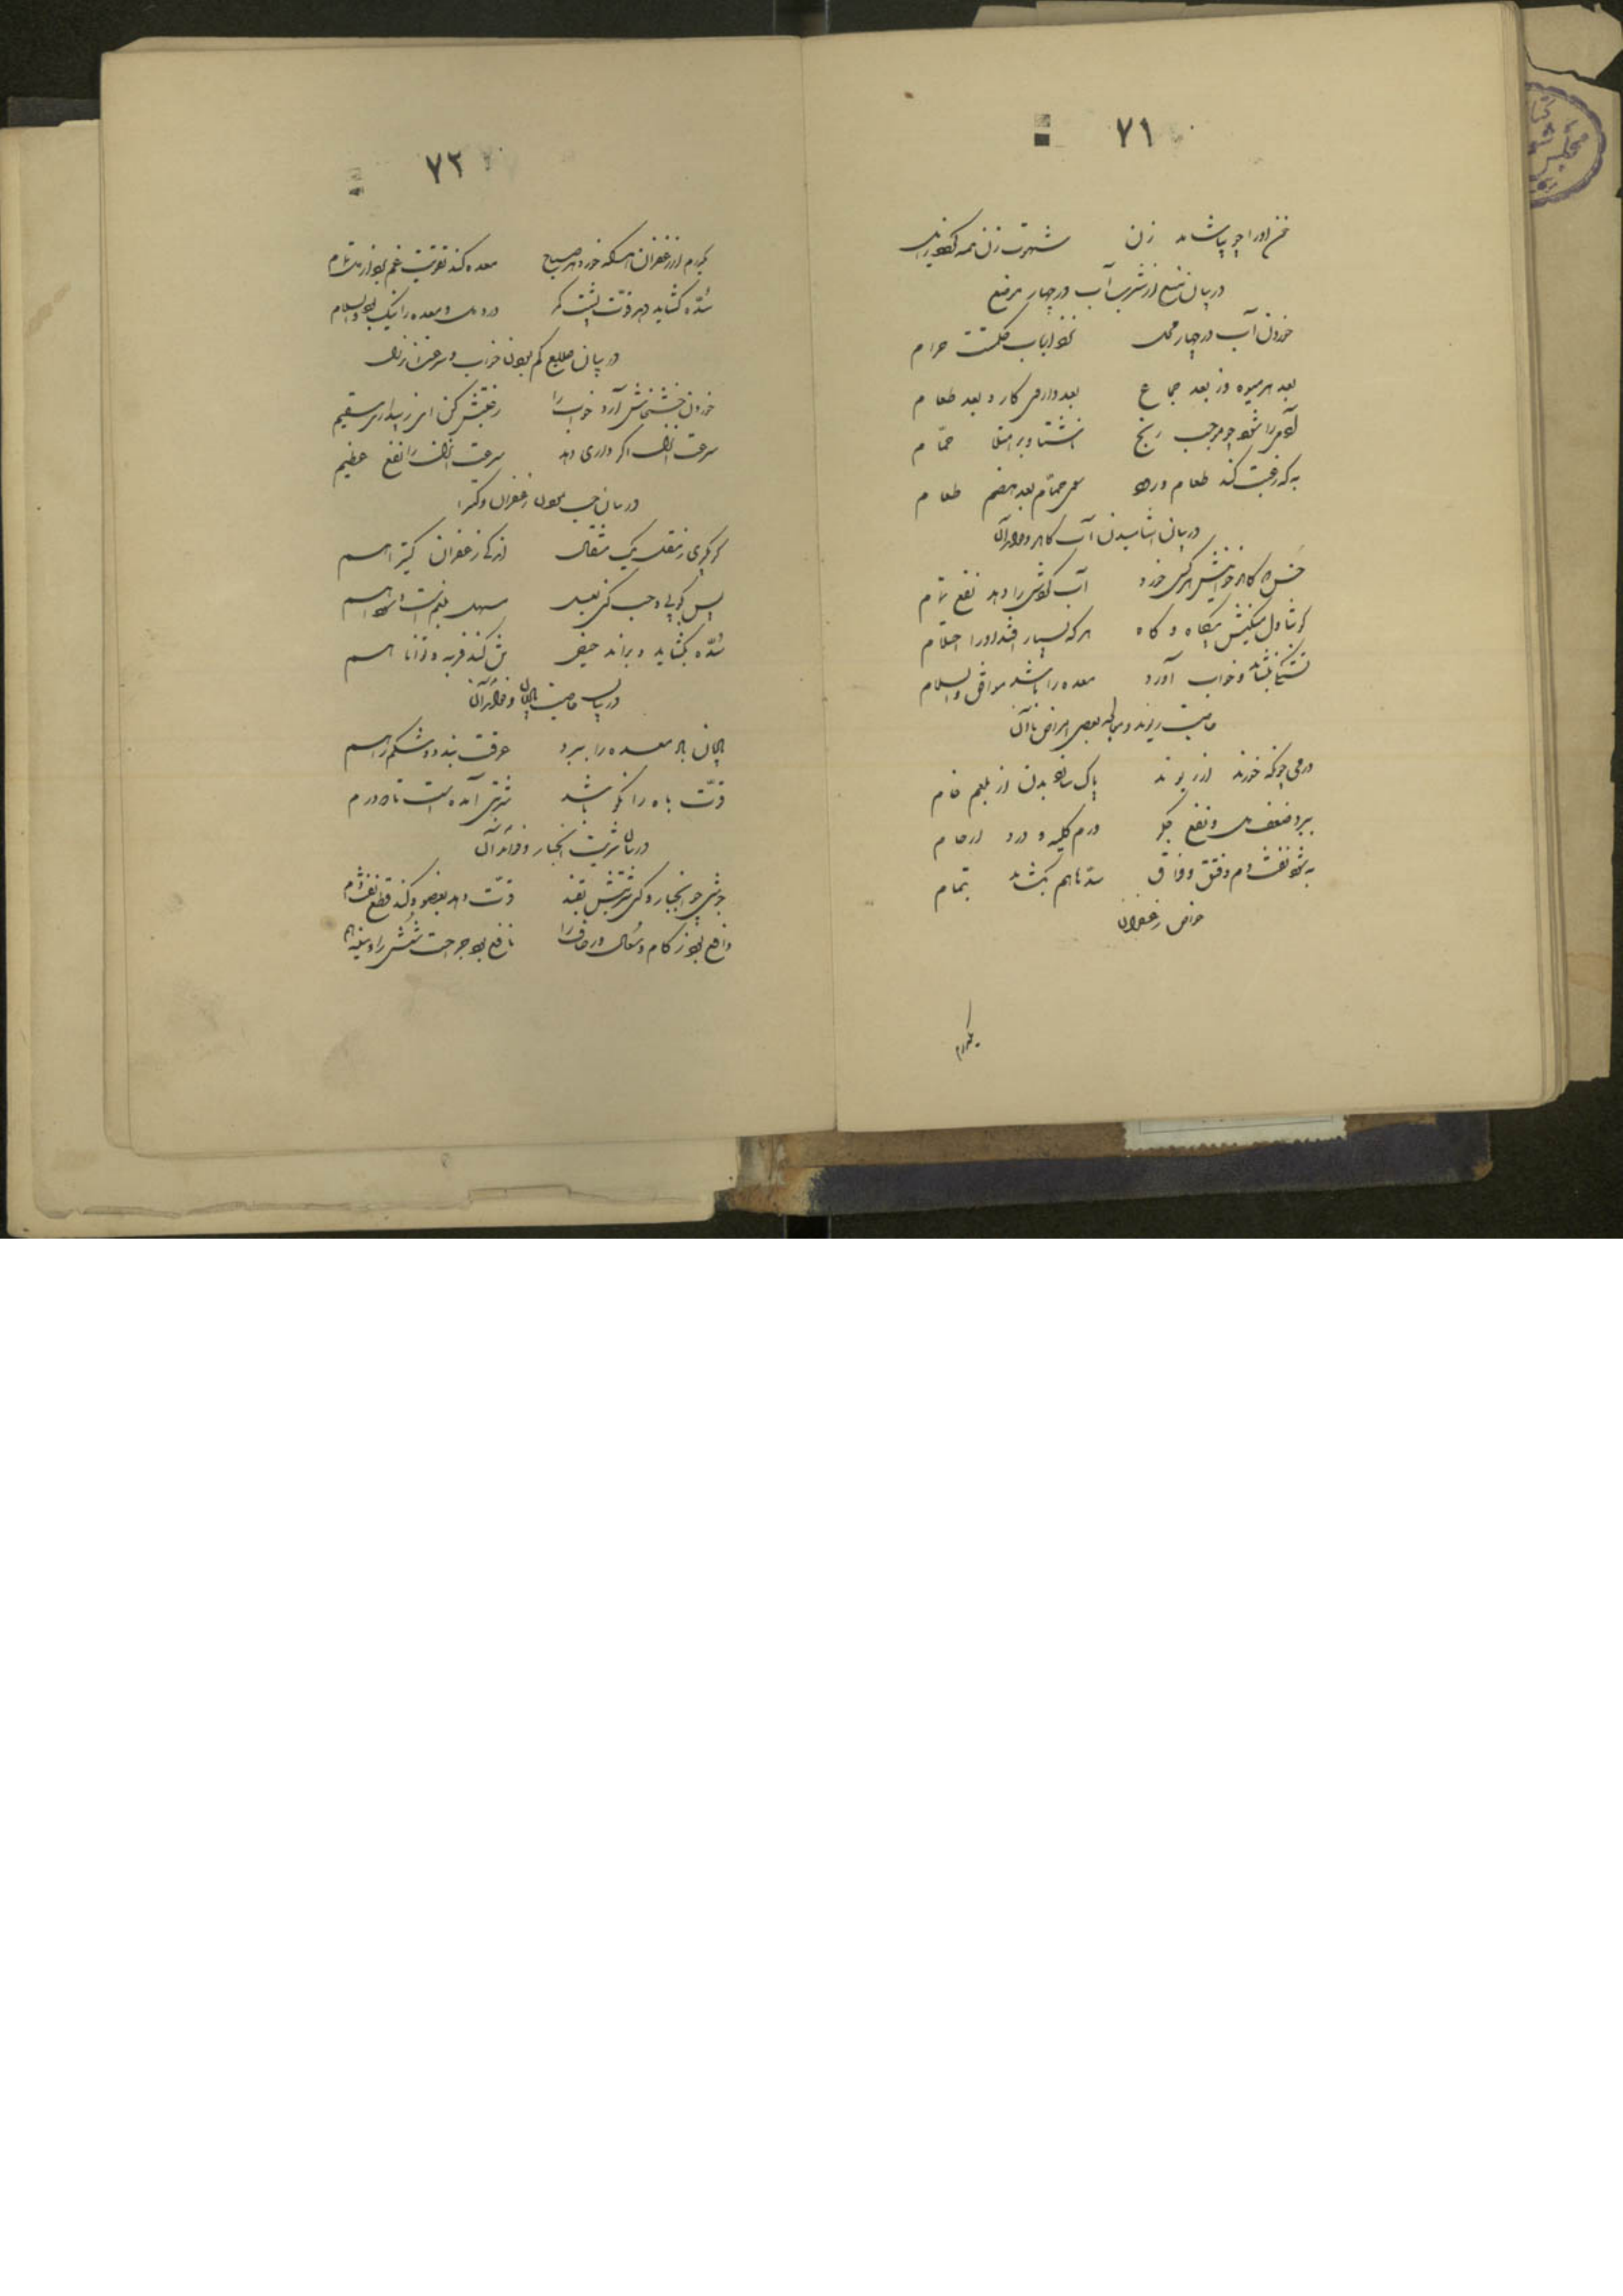 ۷۱
خون او را چو بیاشامد زن شهوت زن همه
در بیان منع از شرب آب در چهار موضع
خوردن آب در چهار محل نزد ارباب حکمتست حرام
بعد هر میوه وز بعد جماع بعد داروی کار و بعد طعام
آدمی را شود چو موجب رنج ناشتا و بر امتلا حمّام
به که رغبت کند طعام ورود سوی حمّام بعد هضم طعام
در بیان آشامیدن آب کاهو و فواید آن
کاهو هر کس خورد آب را دهد نفع تمام
بیگاه و گاه هر که بسیار افتد او را احتلام
تشنگی بنشاند و خواب آورد معده را باشد موافق والسلام
خاصیت ریوند و معالجه بعضی امراض با آن
درمی چونکه خورند از ریوند پاک سازد بدن از بلغم خام
ببرد ضعف دل و نفع جگر ورم کلیه و درد ارحام
به شود نفث دم و فتق و فواق سدّها هم بگشاید بتمام
خواص زعفران
یکدرم
۷۲
یکدرم از زعفران آنکه خورد هر صباح معده کند تقویت غم برد از دل تمام
سُدّه گشاید دهد قوّت پشت کمر درد دل و معده را نیک بود والسلام
در بیان علاج کم بودن خواب و سرعت انزال
خوردن خشخاش آرد خواب را رغبتش کن از بیداری سقیم
سرعت انزال اگر داری دهد سرعت انزال را نفع عظیم
در بیان حب زعفران و کتیرا
گر بگیری ز مقل یک مثقال اندکی زعفران کتیرا هم
پس بکوبی و حب کنی مسهل بلغمست و سودا هم
سُدّه بگشاید و براند حیض تن کند فربه و توانا هم
در بیان خاصیت بالان و فواید آن
باد معده را ببرد عرقت بندد و شکم را هم
قوّت باه را نکو باشد شربتش آمده است تا دو درم
در بیان شربت انجبار و فواید آن
جوشی چو انجبار و کنی شربتش بقند قوّت دهد بعضو و کند قطع نفث دم
دافع بود زکام و سعال و را نافع بود جراحت شُش را و سینه هم